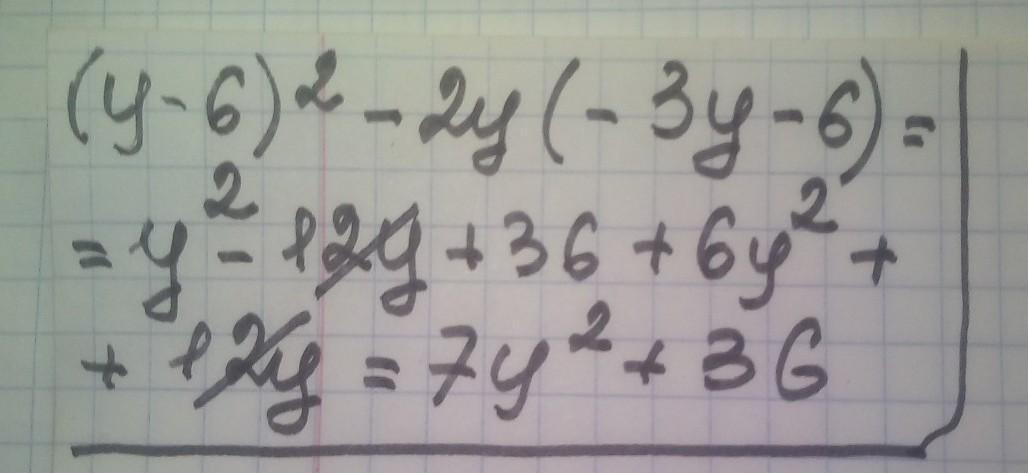 (y-6)² - 2y(-3y-6) =
= y² - 12y + 36 + 6y² +
+ 12y = 7y² + 36